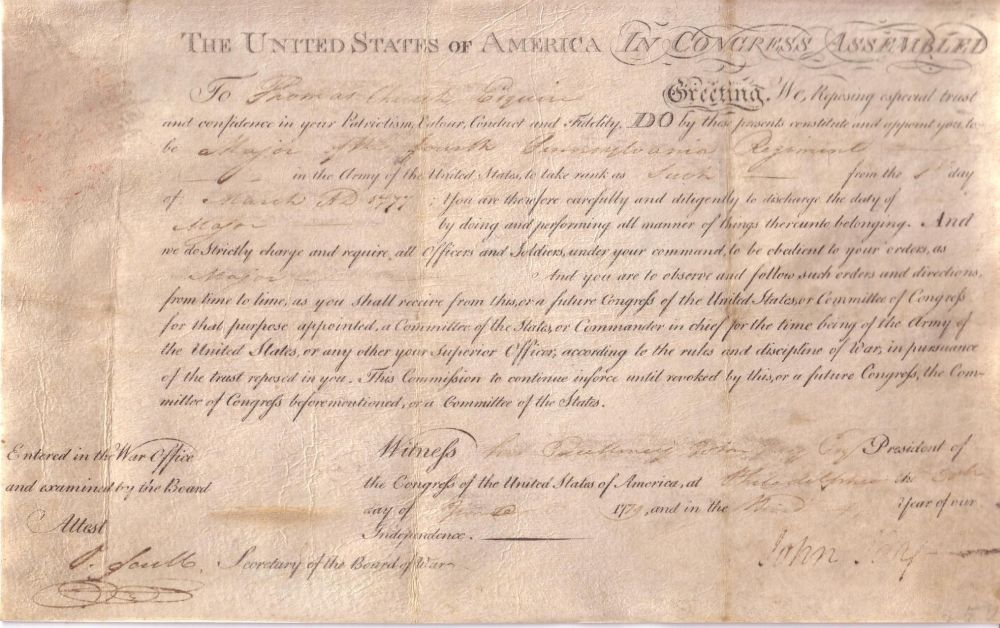 THE UNITED STATES OF AMERICA IN CONGRESS ASSEMBLED
To Thomas Church Esquire Greeting. We, Reposing especial trust
and confidence in your Patriotism, Valour, Conduct and Fidelity, DO by these presents constitute and appoint you, to
be Major of the fourth Pennsylvania Regiment
in the Army of the United States, to take rank as Such from the 1st day
of March AD 1777 ; You are therefore carefully and diligently to discharge the duty of
Major by doing and performing all manner of things thereunto belonging. And
we do Strictly charge and require, all Officers and Soldiers, under your command, to be obedient to your orders, as
Major And you are to observe and follow such orders and directions,
from time to time, as you shall receive from this, or a future Congress of the United States, or Committee of Congress
for that purpose appointed, a Committee of the States, or Commander in chief for the time being of the Army of
the United States, or any other your Superior Officer, according to the rules and discipline of War, in pursuance
of the trust reposed in you. This Commission to continue inforce until revoked by this, or a future Congress, the Com-
mittee of Congress beforementioned, or a Committee of the States.
Entered in the War Office
and examined by the Board
Attest
Secretary of the Board of War
Witness his Excellency John Jay Esq President of
the Congress of the United States of America, at Philadelphia the
day of 1779, and in the Third Year of our
Independence.
John Jay